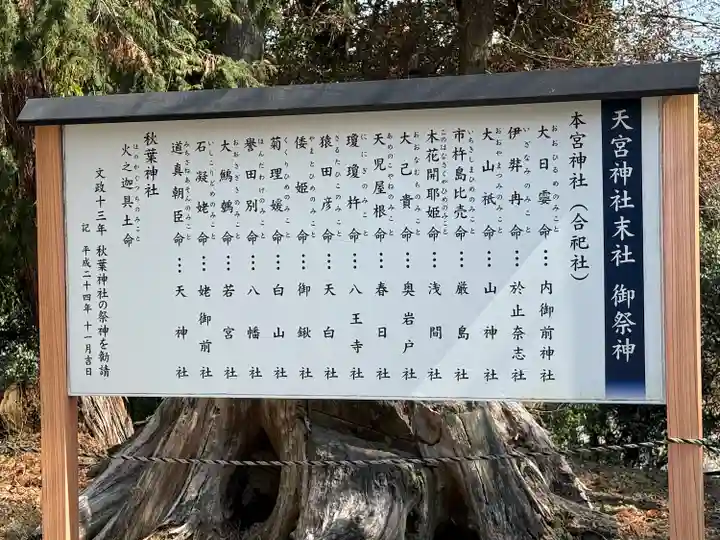 天宮神社末社 御祭神
本宮神社（合祀社）
おおひるめのみこと
大日孁命…内御前神社
いざなみのみこと
伊弉冉命…於止奈志社
おおやまつみのみこと
大山祇命…山神社
いちきしまひめのみこと
市杵島比売命…厳島社
このはなさくやひめのみこと
木花開耶姫命…浅間社
おおなむちのみこと
大己貴命…奥岩戸社
あめのこやねのみこと
天児屋根命…春日社
ににぎのみこと
瓊瓊杵命…八王寺社
さるたひこのみこと
猿田彦命…天白社
やまとひめのみこと
倭姫命…御鍬社
くくりひめのみこと
菊理媛命…白山社
ほんだわけのみこと
誉田別命…八幡社
おおさざきのみこと
大鷦鷯命…若宮社
いしこりどめのみこと
石凝姥命…姥御前社
みちざねあそんのみこと
道真朝臣命…天神社
秋葉神社
ほのかぐつちのみこと
火之迦具土命
文政十三年 秋葉神社の祭神を勧請
記 平成二十四年 十一月吉日